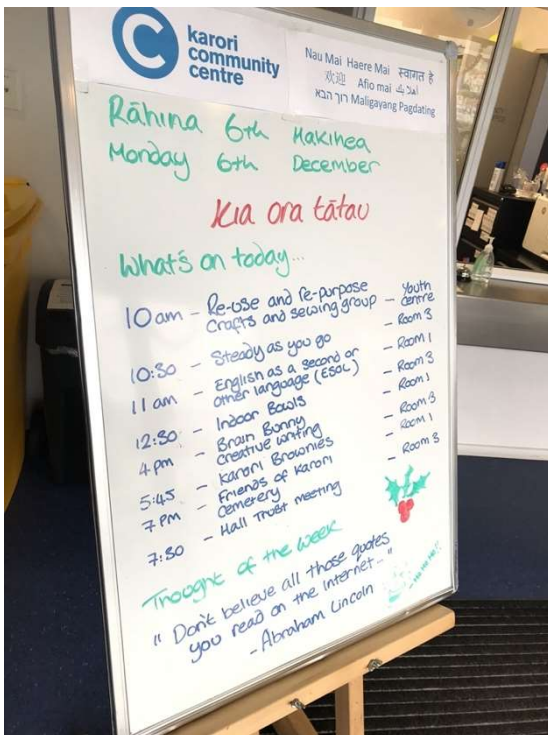 karori
community
centre
Nau Mai Haere Mai स्वागत हे
欢迎 Afio mai
ברוך הבא Maligayang Pagdating
Rāhina 6th Hakihea
Monday 6th December
Kia ora tātau
What's on today...
10am - Re-use and re-purpose
Crafts and sewing group - Youth centre
10:30 - Steady as you go - Room 3
11am - English as a second or
other language (ESOL) - Room 1
12:30 - Indoor Bowls - Room 3
4pm - Brain Bunny
creative writing - Room 1
5:45 - Karori Brownies - Room 3
7pm - Friends of Karori
cemetery - Room 1
7:30 - Hall Trust meeting - Room 3
Thought of the week
"Don't believe all those quotes
you read on the internet-"
- Abraham Lincoln
- Ho Ho Ho!!